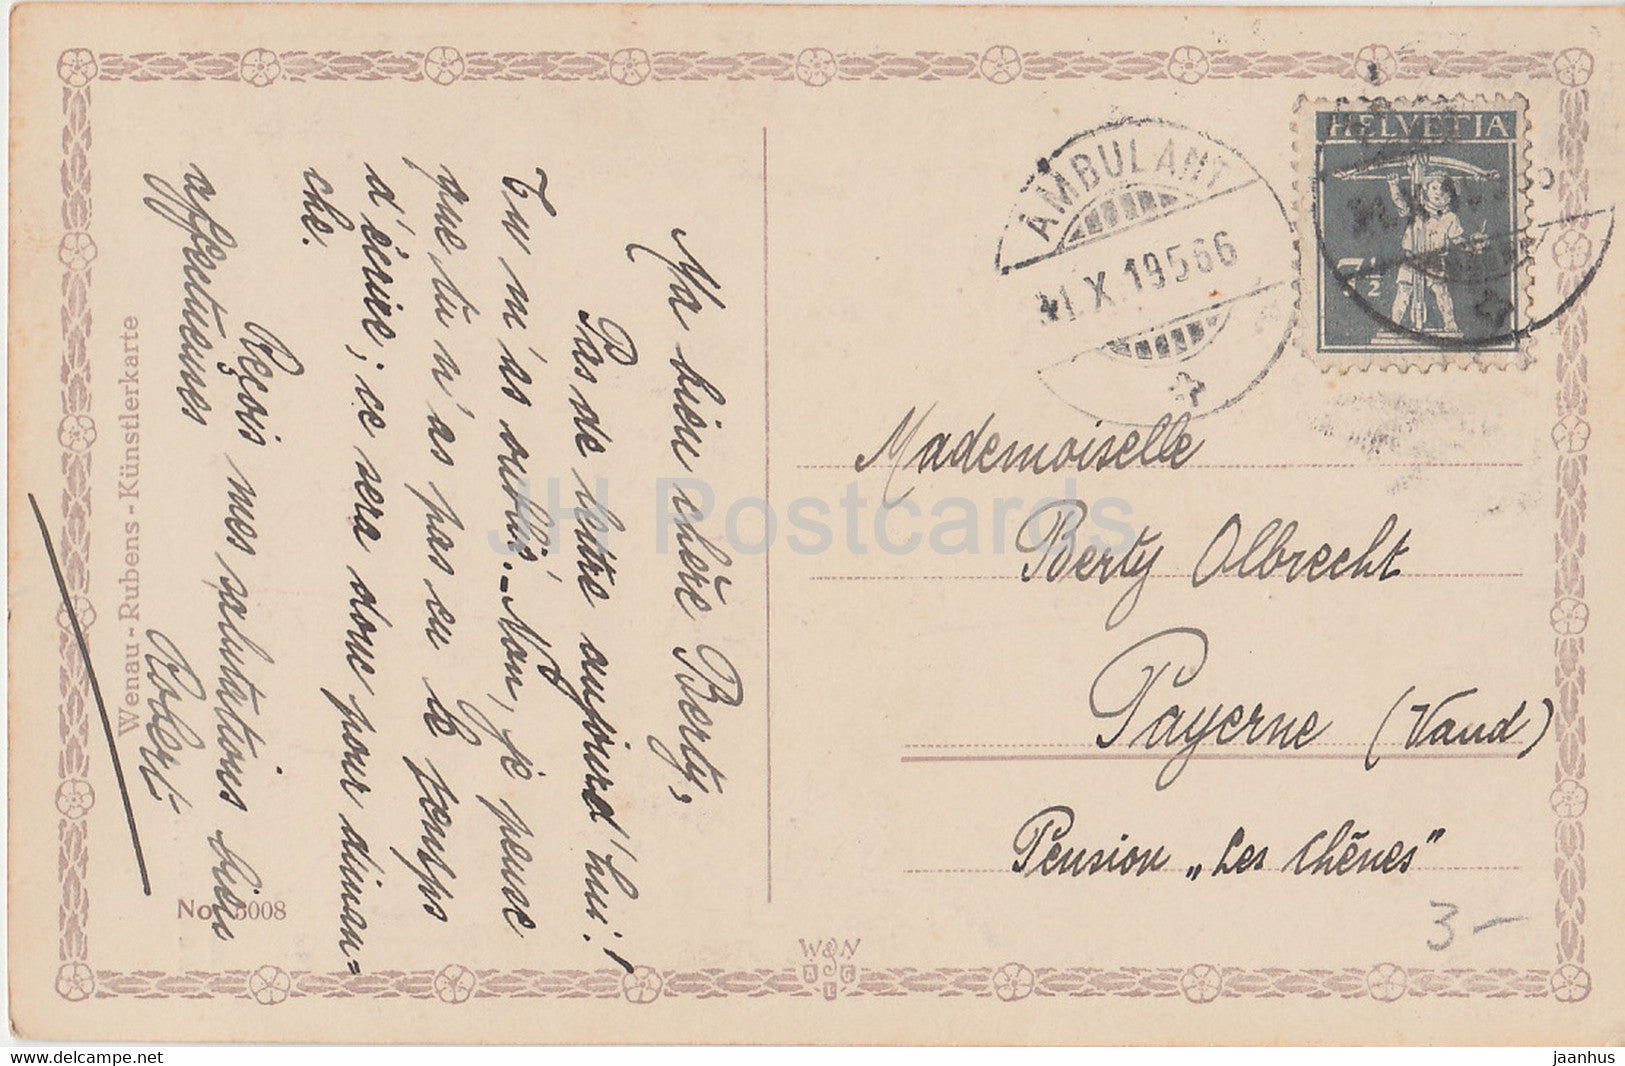 Ma bien chère Berty,
Pas de lettre aujourd'hui!
Tu m'as oublié. – Non, je pense
que tu n'as pas eu le temps
d'écrire; ce sera donc pour diman=
che.
Reçois mes salutations bien
affectueuses
Robert
Wenau-Rubens-Künstlerkarte
No. 5008
AMBULANT
31.X.19566
HELVETIA
7½
Mademoiselle
Berty Olbrecht
Payerne (Vaud)
Pension „Les Chênes"
3-
W&N
JH Postcards
www.delcampe.net
jaanhus